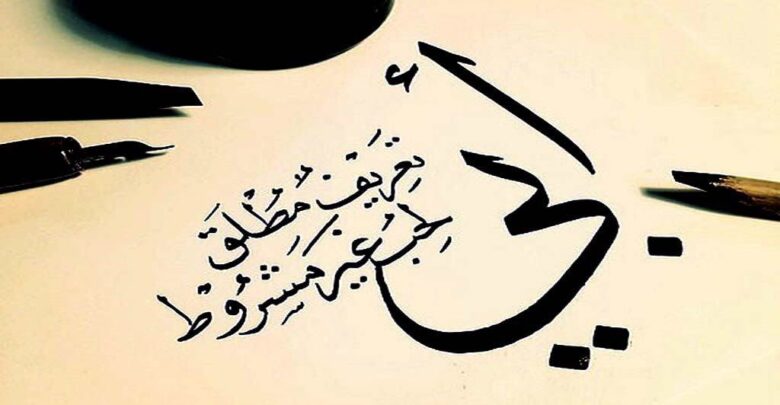 أبي
تعريف مُطْلَق
لِحُب غير مشروط